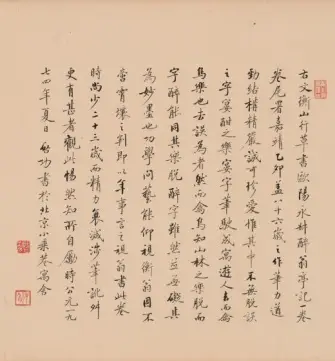 古文衡山行草書歐陽永叔醉翁亭記一卷
卷尾署嘉靖乙卯蓋八十六歲之作筆力遒
勁結構精嚴誠可珍愛惟其中不無脫誤
之字宴酣之樂宴字筆駛成為遊人去而禽
鳥樂也去誤為者然而禽鳥知山林之樂脫而
字醉能同其樂脫醉字雖然並無礙其
為妙墨也功學問藝能仰視衡翁固不
啻霄壤之判即以年事言之視翁書此卷
時尚少二十三歲而精力衰減涉筆訛舛
更有甚者觀此惕然知所自勵時公元一九
七四年夏日啟功書於北京小乘巷寓舍